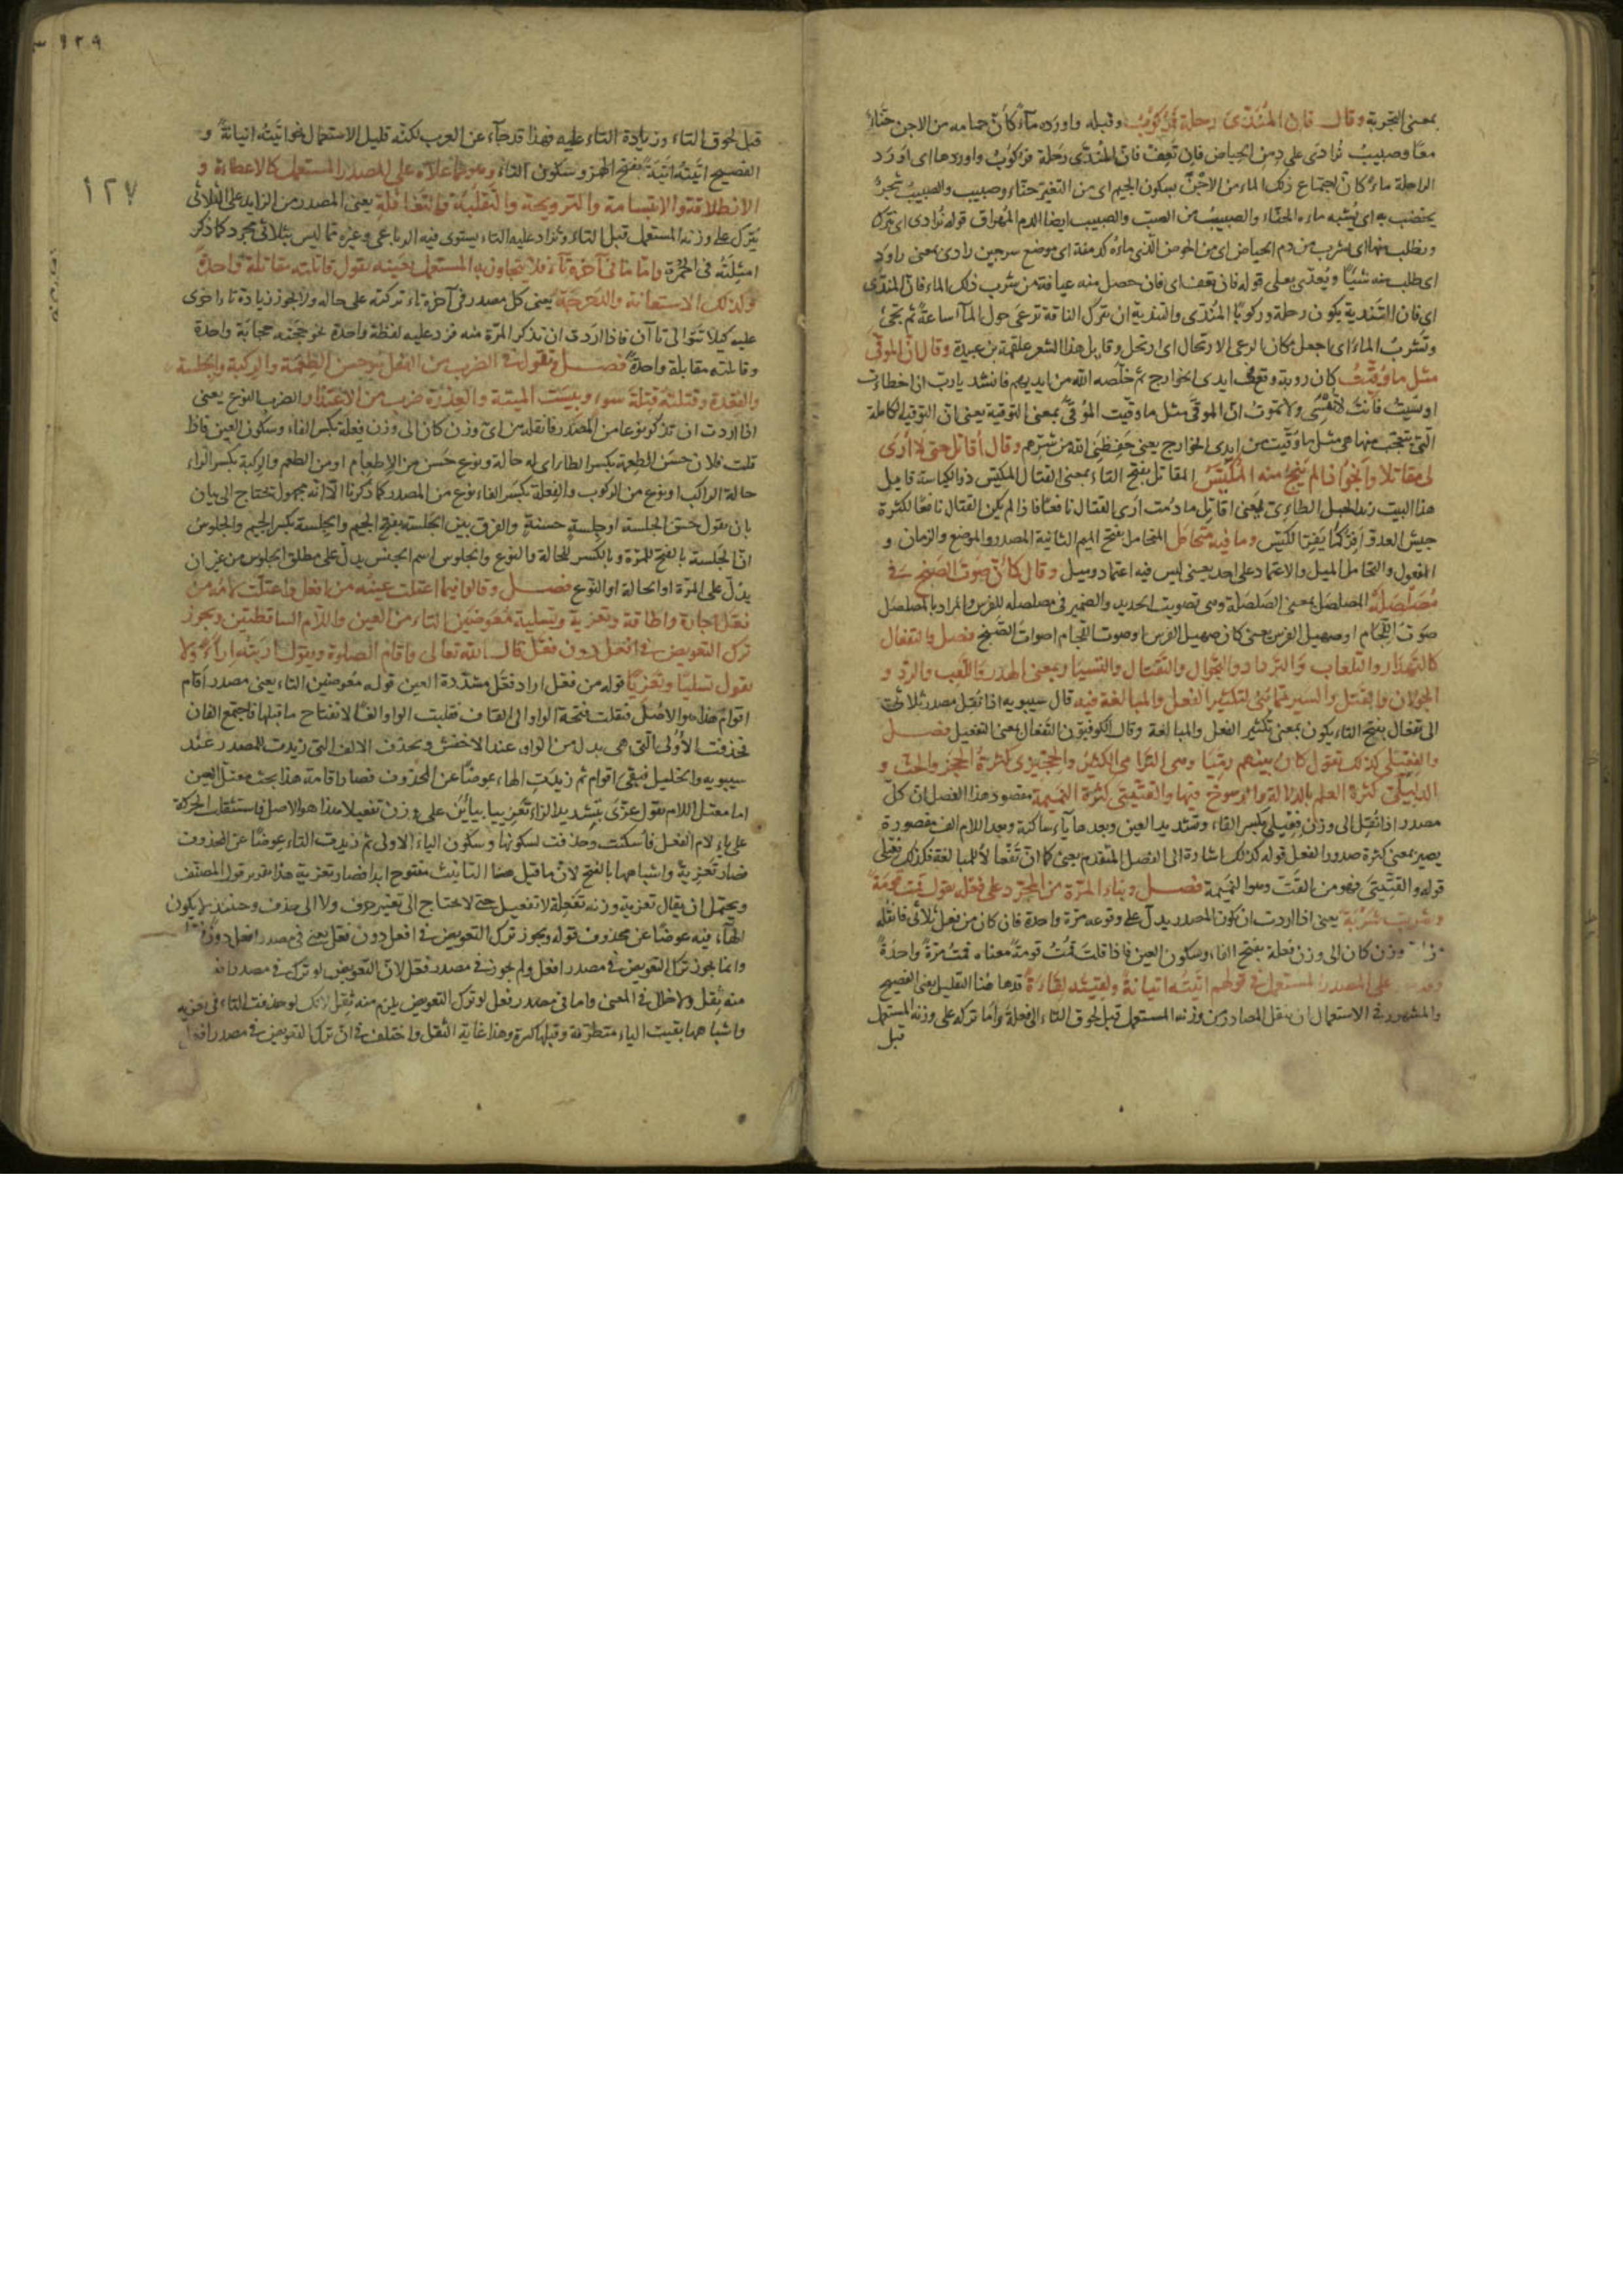 بمعنى التجربة وقال فان المُنَدّى رحلة فركوبُ وقبله واورده ماءً كأنّ جمامه من الاجن حنّاءٌ
معًا وصبيبُ تُرادَى على دِمن الحياض فإن تَعِف فانّ المُندّى رحلة فركوبُ واوردها اى اوَرَد
الراحلة ماءً كانّ اجتماع ذلك الماء من الاجْنِ بسكون الجيم اى من التغيّر حنّاء وصبيب والصبيب شجرٌ
يختضب به اى يُشبه ماءه الحنّاء والصبيبُ من الصبّ والصبيب ايضا الدم المُهراق قوله تُرادى اى تترك
وتطلب منها اى يشرب من دمن الحياض اى من الحوض الذى ماءُه كدمنة اى موضع سرجين رادى بمعنى راوَدَ
اى طلب منه شيئًا ويُعدّى بعلى قوله فان تعف اى فان حصل منه عيافة من شرب ذلك الماء فانّ المندّى
اى فان التَندية يكون رحلة وركوبًا المُندّى والتندية ان تترك الناقة ترعى حول المآء ساعةً ثم يجئ
وتشربُ الماءَ اى اجعل مكان الرعى الارتحال اى ارتحل وقايل هذا الشعر علقمة بن عبيدة وقال انّ الموقّى
مثل ما وُقّيتُ كان روبة وقع فى ايدى الخوارج ثم خلّصه الله من ايديهم فانشد يا ربّ ان اخطاءت
او نسيت فانت لا تَنْسى ولا تموت انّ الموقّى مثل ما وقّيت المُوَقّى بمعنى التوقية يعنى انّ التوقية الكاملة
التى تتعجّب منها هى مثل ما وُقّيت من ايدى الخوارج يعنى حَفِظَنِى الله من شرّهم وقال أقاتل حتى لا أرَى
لى مقاتلا وأنجو اذا لم يَنجُ منه المُكَيَّسُ المقاتَل بفتح التاء بمعنى القتال المكيّس ذو الكياسة قايل
هذا البيت زيد الخيل الطاءى يعنى اقاتِل ما دمت أرَى القتال نافعًا فاذا لم يكن القتال نافعًا لكثرة
جيش العدوّ أفِرّ كما يَفِرّ الكَيّس وما فيه متحامَل المتحامل بفتح الميم الثانية المصدر والموضع والزمان و
المفعول والتحامل الميل والاعتماد على احد يعنى ليس فيه اعتماد وميل وقال كأنّ صوتَ الصَنج فى
مُصَلْصَلَهْ المصلصَل بمعنى الصَلصَلَة وهى تصويت الحديد والضمير فى مصلصله للفرس والمراد بالمصلصَل
صَوتُ اللجام او صهيل الفرس يعنى كان صهيل الفرس او صوت اللجام اصوات الصَنج فصل والتفعال
كالتَهذار والتلعاب والترداد والتجوال والتَقتال والتسيار بمعنى الهَدر واللَعب والردّ و
الجولان والقتل والسير مما بُنى لتكثير الفعل والمبالغة فيه قال سيبويه اذا نُقِل مصدر ثلاثى
الى تفعال بفتح التاء يكون بمعنى تكثير الفعل والمبالغة وقال الكوفيون التفعال بمعنى التفعيل فصل
والفِعّيلَى كذلك تقول كان بينهم رِمّيّا وهى الترامى الكثير والحِجّيزى كثرة الحجز والحثّ و
الدِلّيلَى كثرة العلم بالدلالة والرسوخ فيها والقِتّيتى كثرة النميمة مقصود هذا الفصل ان كلّ
مصدر اذا نُقِل الى وزن فِعّيلى بكسر الفاء وتشديد العين وبعدها ياء ساكنة وبعد اللام الف مقصورة
يصير بمعنى كثرة صدور الفعل قوله كذلك اشارة الى الفصل المتقدم يعنى كما انّ تَفعالا للمبالغة فكذلك فِعّيلى
قوله والقِتّيتى فهو من القَتّ وهو النميمة فصل وبناء المرّة من المجرّد على فَعْلة تقول قمت قومَةً
وشربت شَرْبَةً يعنى اذا اردت ان يكون المصدر يدلّ على وقوعه مرّة واحدة فان كان من فعل ثلاثى فانقله
وزن كان الى وزن فعلة بفتح الفاء وسكون العين فاذا قلتَ قمتُ قومةً معناه قمتُ مرّةً واحدةً
على المصدر المستعمل فى قولهم اتيتُه اتيانةً ولقيتُه لِقاءةً قد ها هنا للتقليل يعنى الفصيح
والمشهور فى الاستعمال ان ينقل المصادر من وزنه المستعمل قبل لحوق التاء الى فعلة وأمّا تركه على وزنه المستعمل
قبل
١٢٧
قبل لحوق التاء وزيادة التاء عليه فهذا قد جاء عن العرب لكنّه قليل الاستعمال نحو اتيتُه اتيانةً و
الفصيح اتيتُه اتيَةً بفتح الهمز وسكون التاء وهو مما عداه على المصدر المستعمل كالاعطاءة و
الانطلاقة والابتسامة والترويحة والتقلّبة والتغافلة يعنى المصدر من الزايد على الثلاثى
يُترك على وزنه المستعمل قبل التاء ويُزاد عليه التاء يستوى فيه الرباعى وغيره مما ليس بثلاثى مجرد كما ذكر
امثلته فى الحُمْرَة وامّا ما فى آخره تاء فلا يتجاوز به المستعمل بعينه تقول قاتلته مقاتلةً واحدةً
وكذلك الاستعانة والدَحرَجَة يعنى كل مصدر فى آخره تاء تركته على حاله ولا يجوز زيادة تاء اخرى
عليه كيلا تتوالى تاآن فاذا اردت ان تذكر المرّة منه فزد عليه لفظة واحدة نحو واحدة
وقابلته مقابلة واحدةً فصل وتقول فى الضرب من الفعل هو حسن الطِعْمة والرِكبة والجِلسة
والقِعْدة وقتلتُه قِتلةَ سوءٍ وبِئسَت المِيتة والعِذْرَة ضرب من الاعتذار والضرب النوع يعنى
اذا اردت ان تذكر نوعا من المصدر فانقله من اىّ وزن كان الى وزن فِعلة بكسر الفاء وسكون العين فاذا
قلت فلان حسَن الطِعمة بكسر الطاء اى له حالة ونوع حَسن من الاطعام او من الطعم والرِكبة بكسر الراء
حالة الراكب او نوع من الركوب والفِعلة بكسر الفاء نوع من المصدر كما ذكرنا الّا انّه مجهول تحتاج الى بيان
بان يقول حسَن الجلسة او جِلسةٍ حسنةٍ والفرق بين الجَلسة بفتح الجيم والجِلسة بكسر الجيم والجلوس
انّ الجَلسة بالفتح للمرّة وبالكسر للحالة والنوع والجلوس اسم الجنس يدلّ على مطلق الجلوس من غير ان
يدلّ على المرّة او الحالة او النوع فصل وقالوا فيما اعتلّت عينُه من افعل واعتلّت لامه من
فعّل اجازة واطاقة وتعزية وتسلية مُعَوِّضين التاء من العين واللام الساقطتين ويجوز
ترك التعويض فى افعل دون فعّل قال الله تعالى واقام الصلوة وتقول اريتُه إراءً ولا
تقول تسليًا وتعزيًا قوله من فعّل اراد فعّل مشدّدة العين قوله مُعوضين التاء يعنى مصدر أقام
اقوامٌ هذا هو الاصل فنقلت فتحة الواو الى القاف فقلبت الواو الفًا لانفتاح ما قبلها فاجتمع الفان
فحذفت الاولى التى هى بدل من الواو عند الاخفش وبحذف الالف التى زيدت للمصدر عند
سيبويه والخليل فبقى اقوام ثم زيدت الهاء عوضًا عن المحذوف فصار اقامة هذا بحث معتلّ العين
اما معتلّ اللام تقول عزّى بتشديد الزاء تَعْزِيبا بيائين على وزن تفعيلا هذا هو الاصل فاستثقلت الحركة
على ياء لام الفعل فأسكنت وحذفت لسكونها وسكون الياء الاولى ثم زيدت التاء عوضًا عن المحذوف
فصار تَعزِيةً واشباهها بالفتح لانّ ما قبل هاء التانيث مفتوح ابدا فصار تعزية هذا تقدير قول المصنّف
ويحتمل ان يقال تعزية وزنه تفعِلة لا تفعيل حتى لا تحتاج الى تغيير حرف ولا الى حذف وحينئذ لا يكون
الهاء فيه عوضًا عن محذوف قوله ويجوز ترك التعويض فى افعل دون فعّل يعنى فى مصدر افعل دون
وانما يجوز ترك التعويض فى مصدر افعل ولم يجوز فى مصدر فعّل لانّ التعويض لو ترك فى مصدر افعل
منه ثِقل ولا خلل فى المعنى واما فى مصدر فعّل لو ترك التعويض يلزم منه ثِقل لانك لو حذفت التاء فى تعزية
واشباهها بقيت الياء متطرّفة وقبلها كسرة وهذا غاية الثقل واختلف فى انّ ترك التعويض فى مصدر افعل